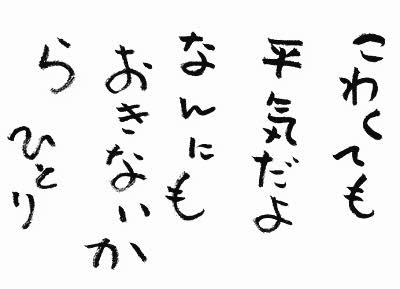 こわくても
平気だよ
なんにも
おきないか
ら ひとり